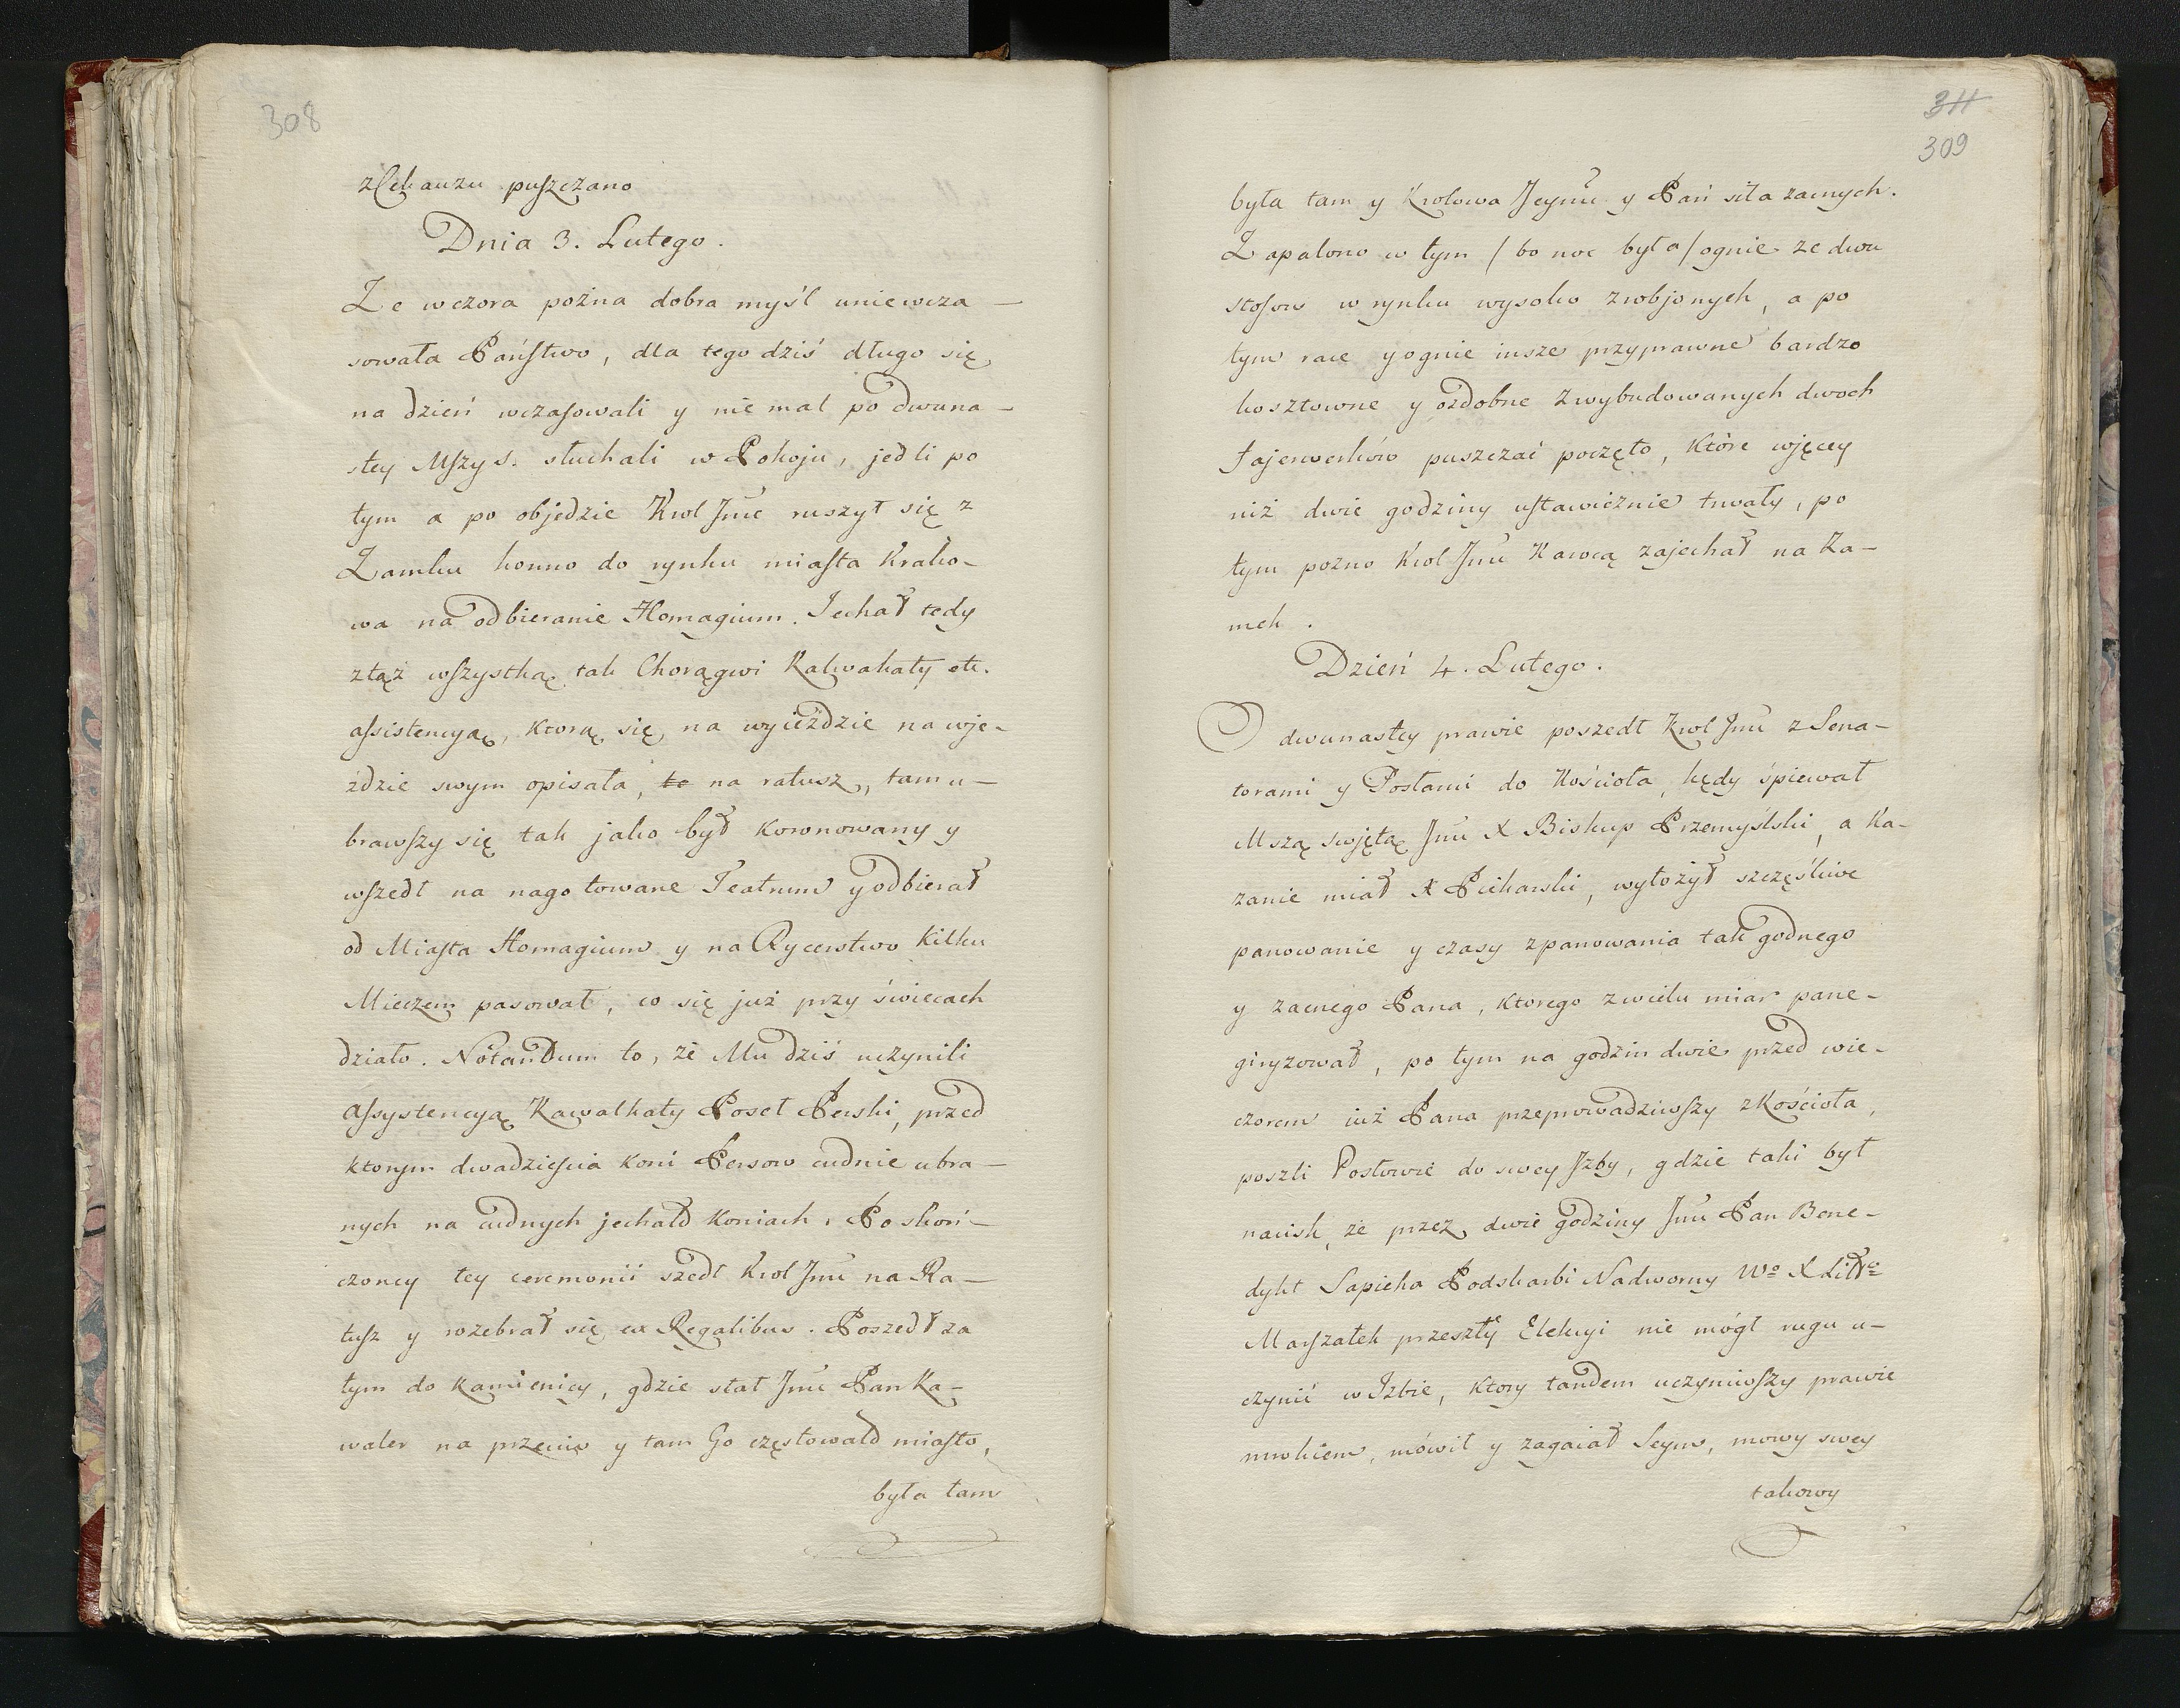 308
z Cekauzu puszczano
Dnia 3. Lutego.
Ze wczora poźna dobra myśl uniewcza-
sowała Państwo, dla tego dziś długo się
na dzień wczasowali y nie mal po dwuna-
stey Mszy S. słuchali w Pokoju, jedli po
tym a po objedzie Krol Jmć ruszył się z
Zamku konno do rynku miasta Krako-
wa na odbieranie Homagium. Jechał tedy
z taż wszystką tak Chorągwi Kalwakaty etc.
assistencyą, ktorą się na wyieździe na wje-
ździe swym opisała, te na ratusz, tam u-
brawszy się tak jako był koronowany y
wszedł na nagotowane Teatrum y odbierał
od Miasta Homagium y na Rycerstwo kilku
Mieczem pasował, co się już przy świecach
działo. Notandum to, że Mu dziś uczynili
assystencyą Kawalkaty Poseł Perski, przed
ktorym dwadzieścia koni Persow cudnie ubra-
nych na cudnych jechało koniach. Po skoń-
czoney tey ceremonii szedł Krol Jmć na Ra-
tusz y rozebrał się ex Regalibus. Poszedł za
tym do kamienicy, gdzie stał Jmć Pan Ka-
waler na przeciw y tam Go częstowało miasto,
była tam
311
309
była tam y Krolowa Jeymć y Pań siła zacnych.
Zapalono w tym / bo noc była / ognie ze dwu
stosow w rynku wysoko zrobjonych, a po
tym race y ognie insze przyprawne bardzo
kosztowne y ozdobne z wybudowanych dwoch
fajerwerków puszczać poczęto, które więcey
niż dwie godziny ustawicznie trwały, po
tym pozno Krol Jmć Karocą zajechał na Za-
mek.
Dzień 4. Lutego.
O dwunastey prawie poszedł Krol Jmć z Sena-
torami y Posłami do Kościoła, kędy śpiewał
Mszą świętą Jmć X Biskup Przemyślski, a Ka-
zanie miał X Piekarski, wyłożył szczęśliwe
panowanie y czasy z panowania tak godnego
y zacnego Pana, ktorego z wielu miar pane-
giryzował, po tym na godzin dwie przed wie-
czorem już Pana przeprowadziwszy z Kościoła,
poszli Posłowie do swey Izby, gdzie taki był
nacisk, że przez dwie godziny Jmć Pan Bene-
dykt Sapieha Podskarbi Nadworny Wo X Litto
Marszałek przeszły Elekcyi nie mógł rugu u-
czynić w Izbie, ktory tandem uczyniwszy prawie
mrokiem, mówił y zagaiał Seym, mowy swey
takowy